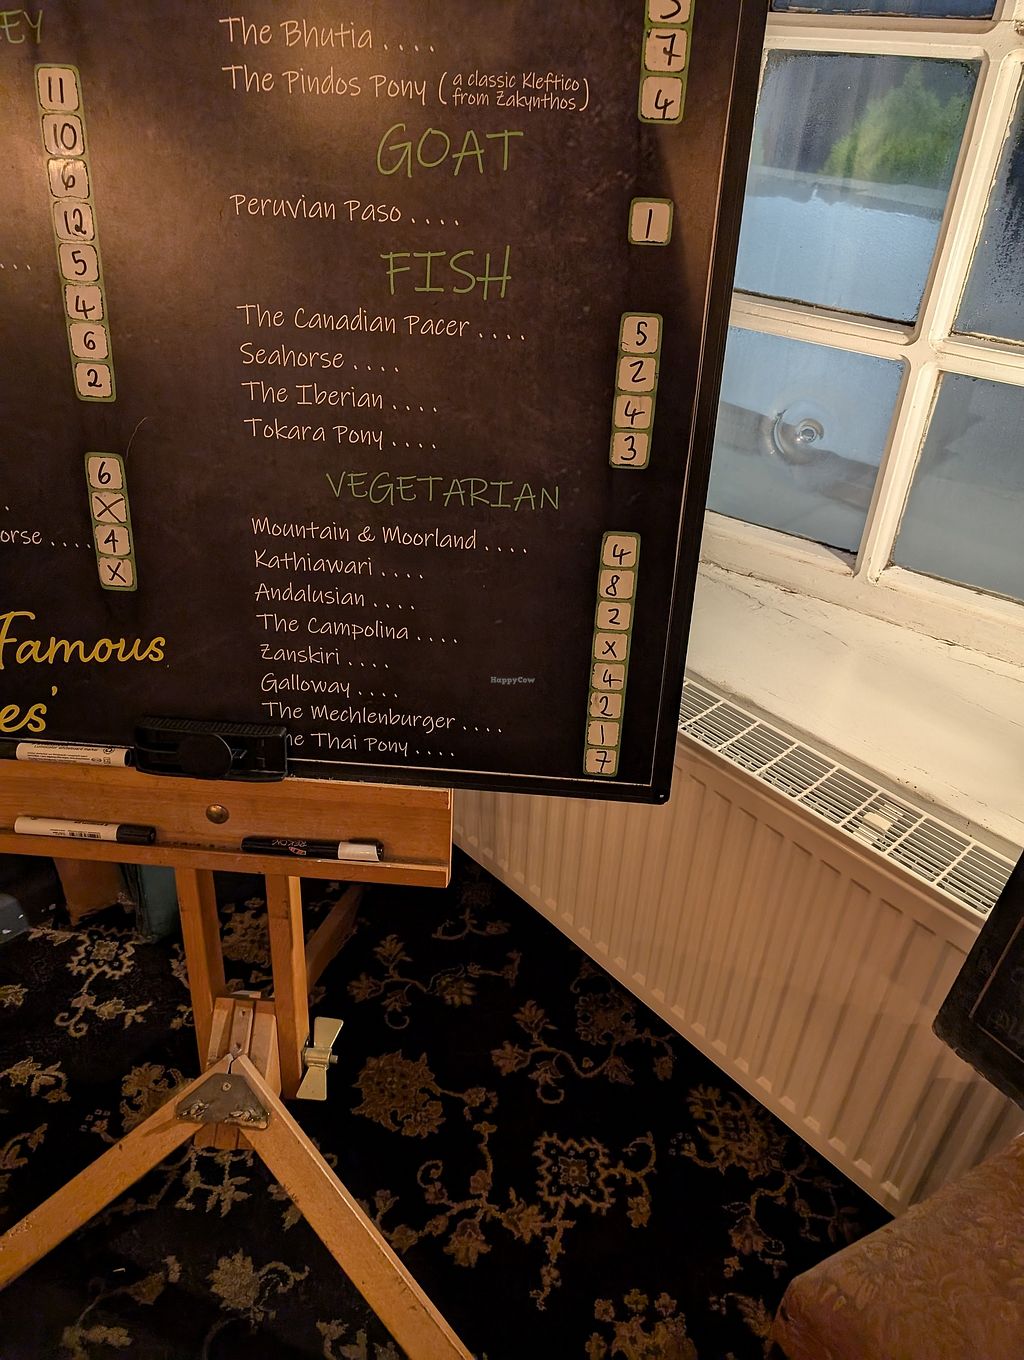 EY
11
10
6
12
5
4
6
2
6
X
orse .... 4
X
Famous
es'
5
The Bhutia .... 7
The Pindos Pony (a classic Kleftico from Zakynthos) 4
GOAT
Peruvian Paso .... 1
FISH
The Canadian Pacer .... 5
Seahorse .... 2
The Iberian .... 4
Tokara Pony .... 3
VEGETARIAN
Mountain & Moorland .... 4
Kathiawari .... 8
Andalusian .... 2
The Campolina .... X
Zanskiri .... 4
Galloway .... 2
The Mechlenburger .... 1
he Thai Pony .... 7
HappyCow